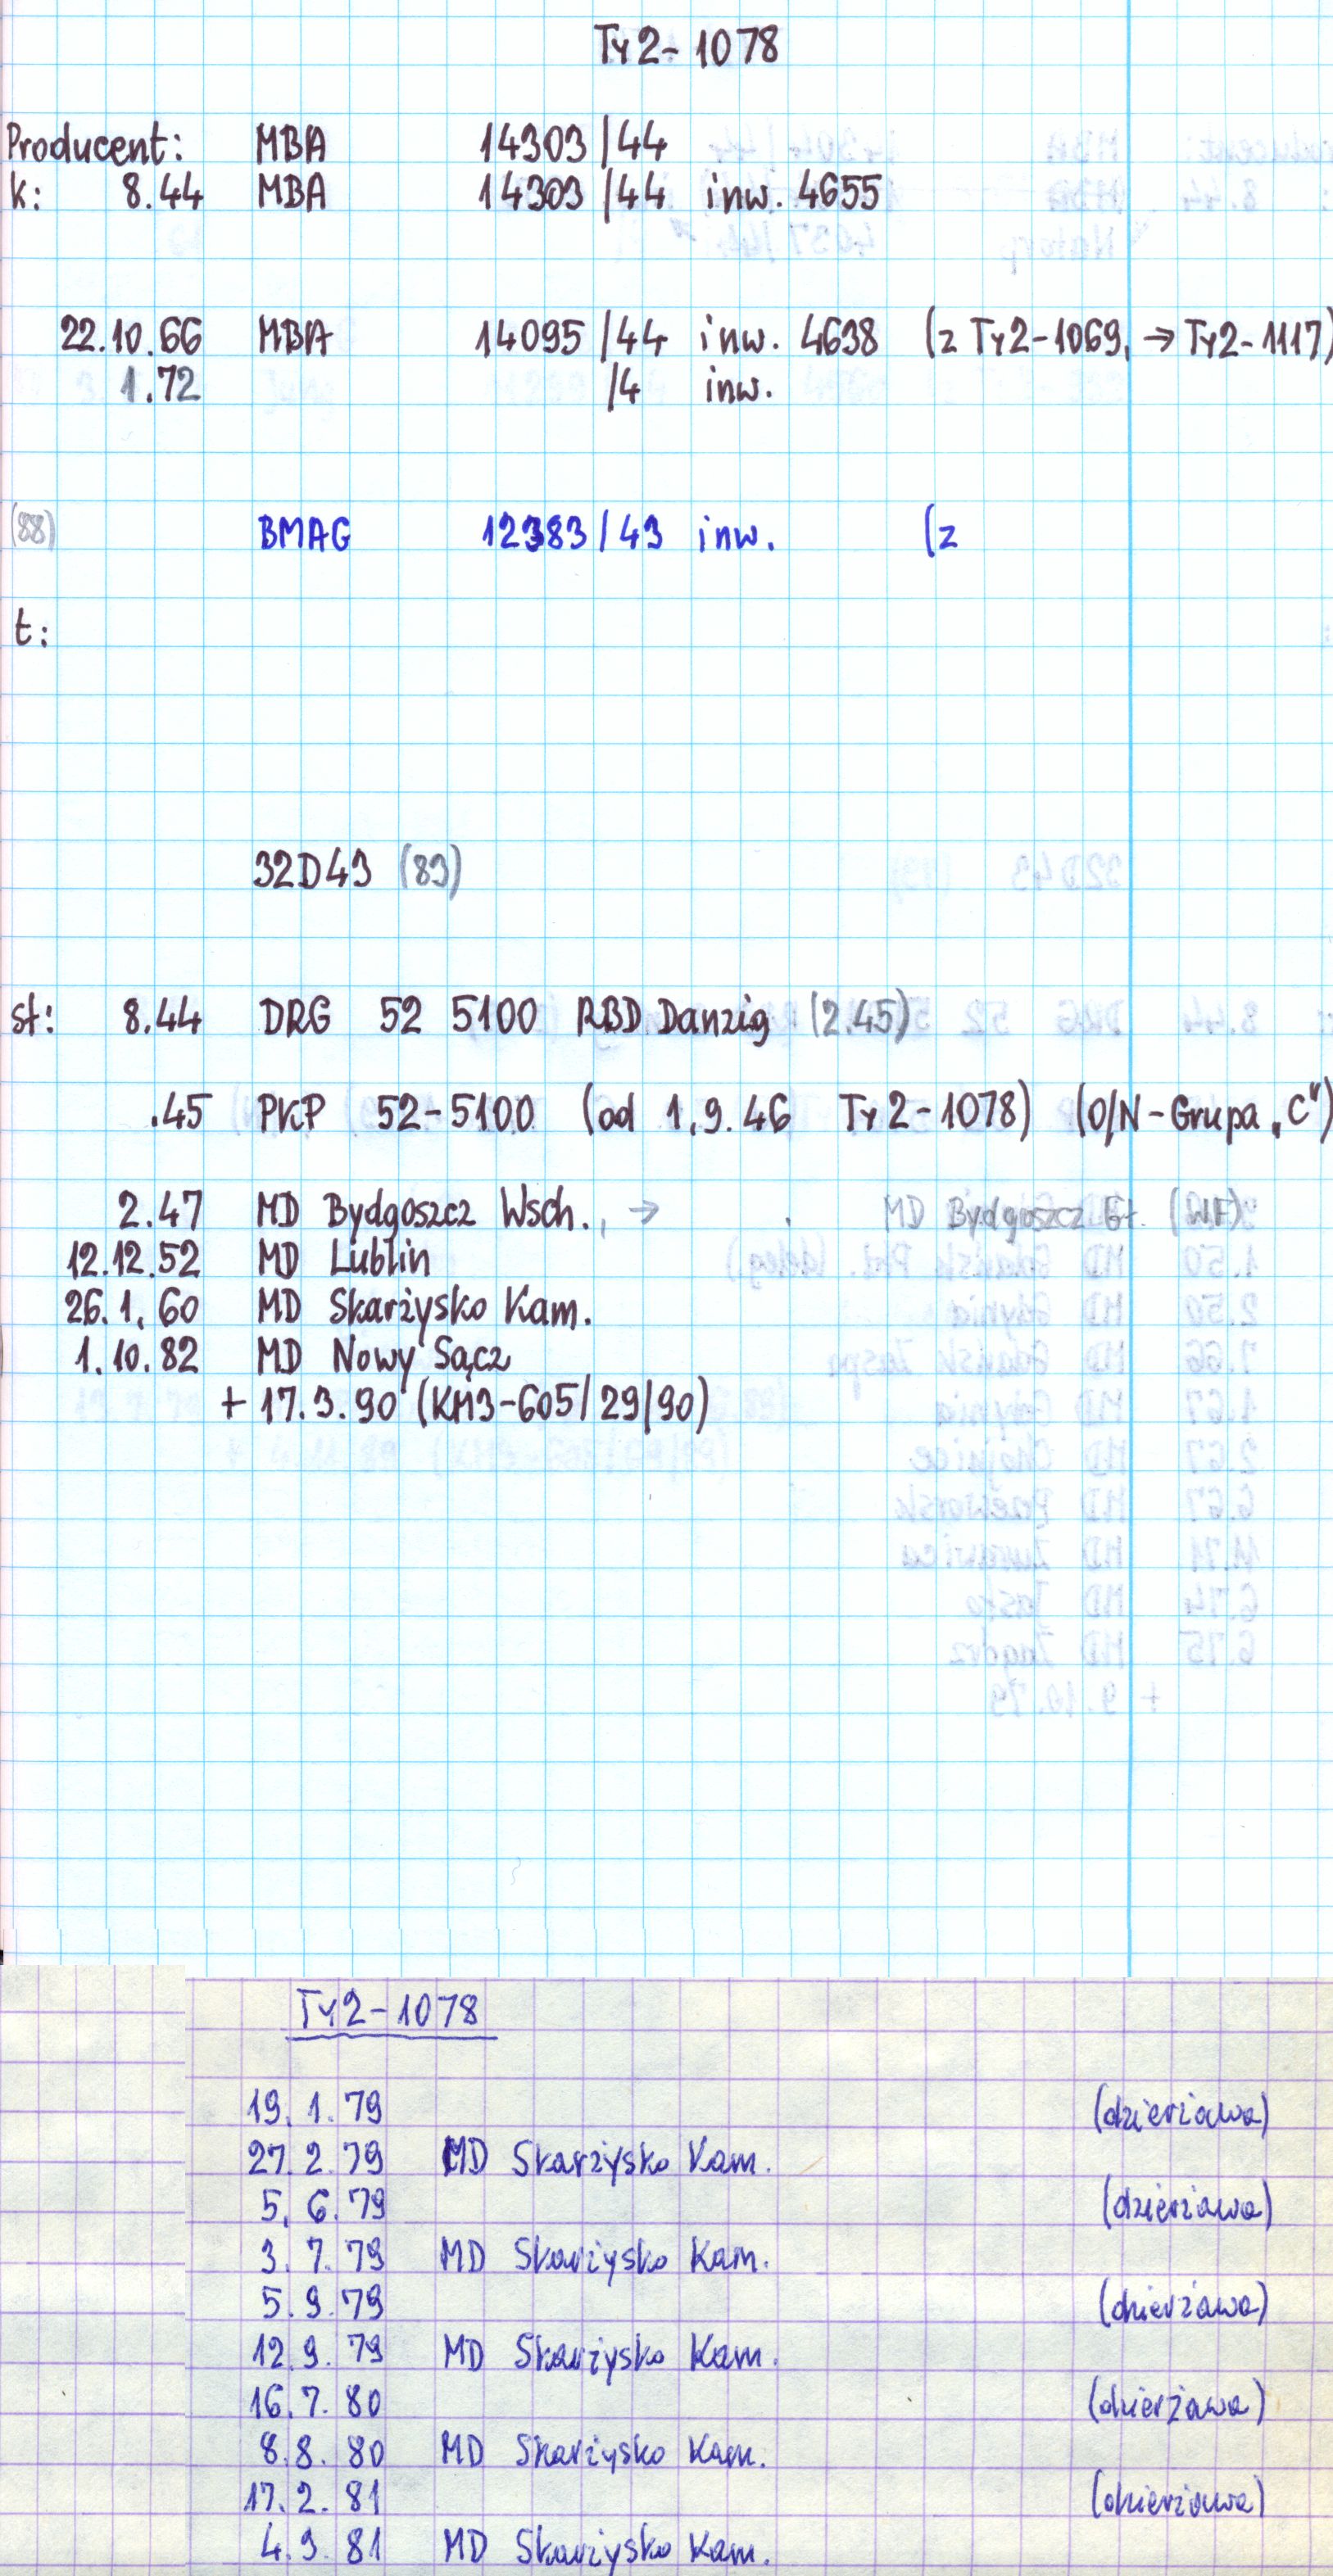 Ty2-1078
Producent: MBA 14303/44
k: 8.44 MBA 14303/44 inw. 4655
22.10.66 MBA 14095/44 inw. 4638 (z Ty2-1069, → Ty2-1117)
1.72 /4 inw.
(88) BMAG 12383/43 inw. (z
t:
32D43 (83)
st: 8.44 DRG 52 5100 RBD Danzig (2.45)
.45 PKP 52-5100 (od 1.9.46 Ty2-1078) (O/N-Grupa „C")
2.47 MD Bydgoszcz Wsch., → MD Bydgoszcz Gł. (WF)
12.12.52 MD Lublin
26.1.60 MD Skarżysko Kam.
1.10.82 MD Nowy Sącz
+ 17.3.90 (KM3-605/29/90)
Ty2-1078
19.1.79 (dzierżawa)
27.2.79 MD Skarżysko Kam.
5.6.79 (dzierżawa)
3.7.79 MD Skarżysko Kam.
5.9.79 (dzierżawa)
12.9.79 MD Skarżysko Kam.
16.7.80 (dzierżawa)
8.8.80 MD Skarżysko Kam.
17.2.81 (dzierżawa)
4.9.81 MD Skarżysko Kam.